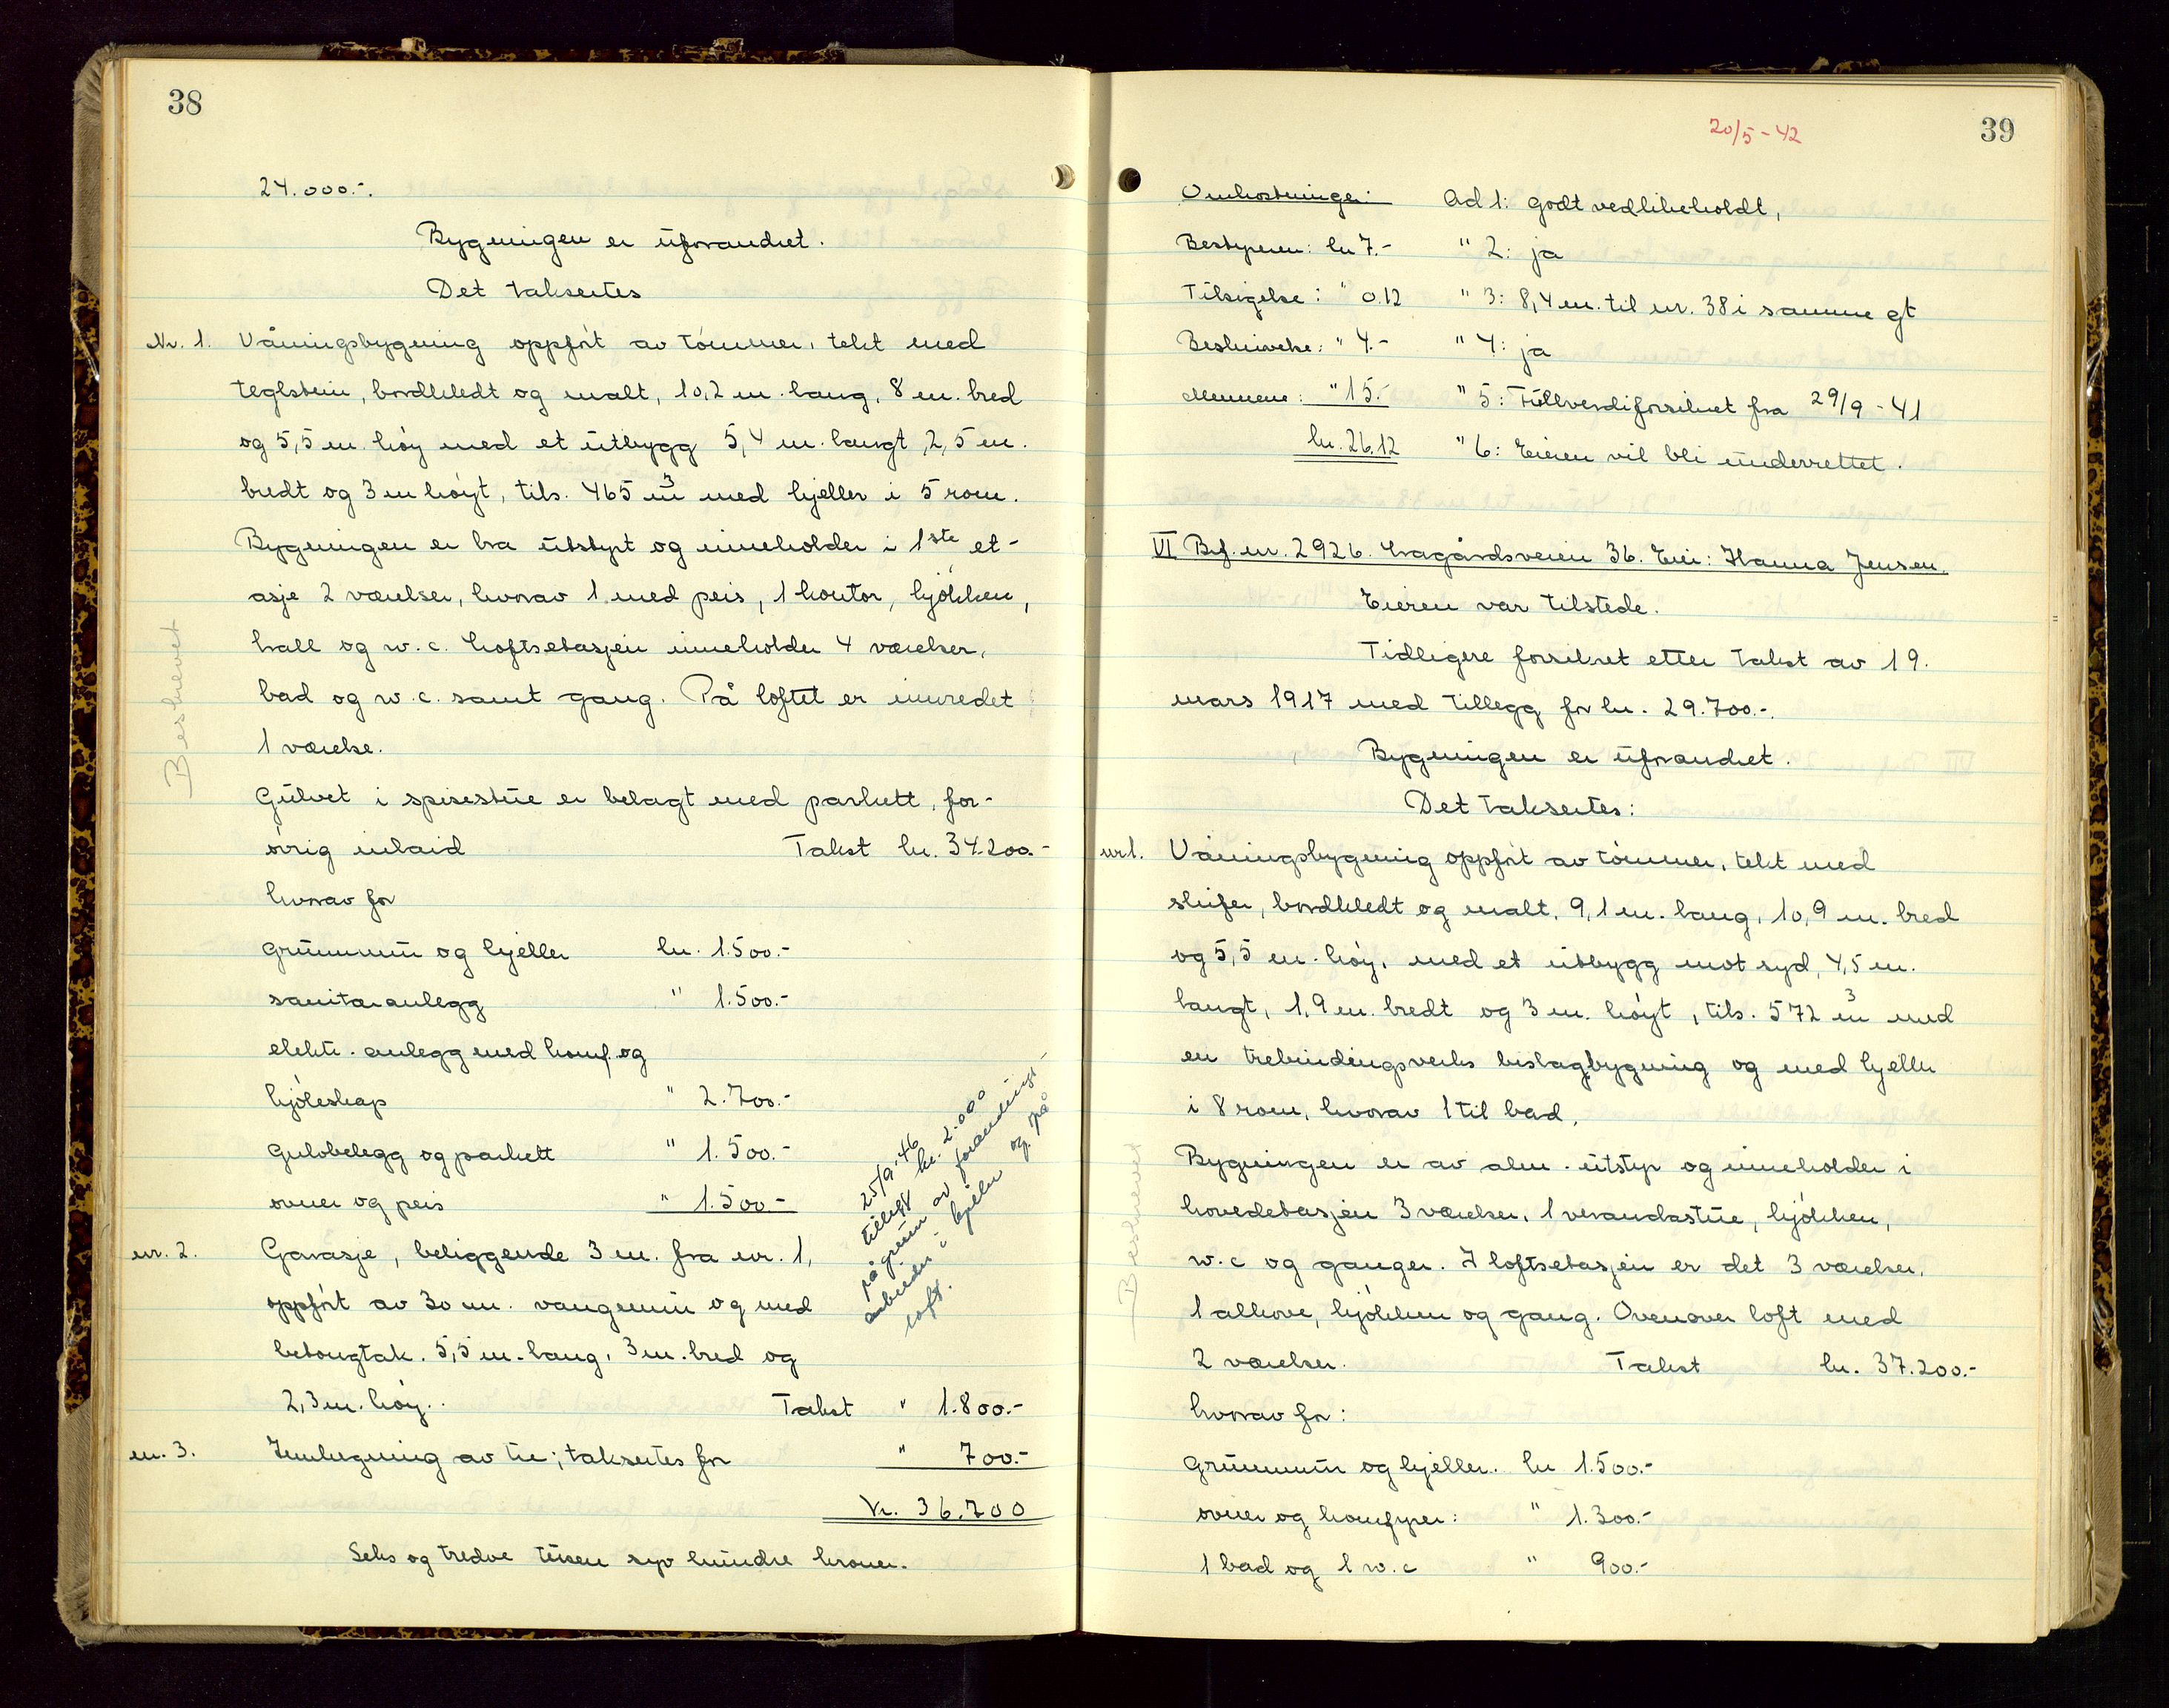 38
24.000.-.
Bygningen er uforandret.
Det taksertes
Nr. 1. Våningsbygning oppført av tømmer, tekt med
teglstein, bordkledt og malt, 10,2 m. lang, 8 m. bred
og 5,5 m. høy med et utbygg 5,4 m. langt, 2,5 m.
bredt og 3 m høyt, tils. 465 m³ med kjeller i 5 rom.
Bygningen er bra utstyrt og inneholder i 1ste et-
asje 2 værelser, hvorav 1 med peis, 1 kontor, kjøkken,
hall og w.c. Loftsetasjen inneholder 4 værelser,
bad og w.c. samt gang. På loftet er innredet
1 værelse.
Gulvet i spisestue er belagt med parkett, for-
øvrig inlaid Takst kr. 34.200.-
hvorav for
grunnmur og kjeller kr. 1.500.-
sanitæranlegg " 1.500.-
elektr. anlegg med komf. og
kjøleskap " 2.700.-
Gulvbelegg og parkett " 1.500.-
ovner og peis " 1.500.-
nr. 2. Garasje, beliggende 3 m. fra nr. 1,
oppført av 30 cm. vangemur og med
betongtak. 5,5 m. lang, 3 m. bred og
2,3 m. høy. Takst " 1.800.-
nr. 3. Innhegning av tre; taksertes for " 700.-
Kr. 36.700
Seks og tredve tusen syv hundre kroner.
Beskrevet
25/9-46
tillegg kr. 2.000
på grunn av forandrings-
arbeider i kjeller og på
loft.
39
20/5-42
Omkostninger: Ad 1: godt vedlikeholdt,
Bestyreren: kr 7.- " 2: ja
Tilsigelse: " 0.12 " 3: 8,4 m. til nr. 38 i samme gt
Beskrivelse: " 4.- " 4: ja
Mennene: " 15.- " 5: Fullverdiforsikret fra 29/9-41
kr. 26,12 " 6: Eieren vil bli underrettet.
VI Brf. nr. 2926. Kragårdsveien 36. Eier: Hanna Jensen.
Eieren var tilstede.
Tidligere forsikret etter takst av 19.
mars 1917 med tillegg for kr. 29.700.-.
Bygningen er uforandret.
Det taksertes:
nr 1. Våningsbygning oppført av tømmer, tekt med
skifer, bordkledt og malt, 9,1 m. lang, 10,9 m. bred
og 5,5 m. høy, med et utbygg mot syd, 4,5 m.
langt, 1,9 m. bredt og 3 m. høyt, tils. 572 m³ med
en trebindingsverks bislagbygning og med kjeller
i 8 rom, hvorav 1 til bad.
Bygningen er av alm. utstyr og inneholder i
hovedetasjen 3 værelser, 1 verandastue, kjøkken,
w.c og ganger. I loftsetasjen er det 3 værelser,
1 alkove, kjøkken og gang. Ovenover loft med
2 værelser. Takst kr. 37.200.-
hvorav for:
grunnmur og kjeller. kr 1.500.-
ovner og komfyrer: " 1.300.-
1 bad og 1 w.c " 900.-
Beskrevet